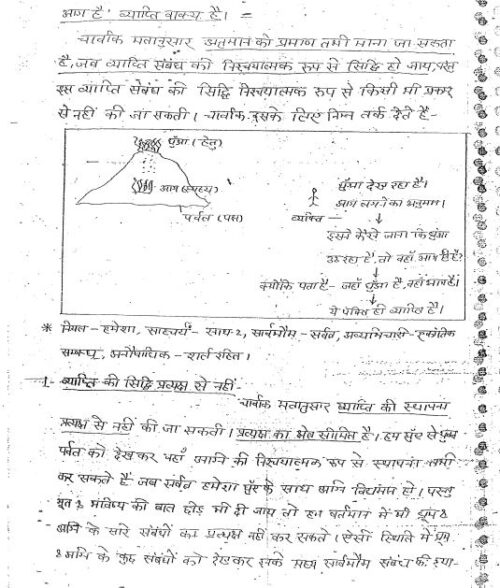 आग है' व्याप्ति वाक्य है।
चार्वाक मतानुसार अनुमान को प्रमाण तभी माना जा सकता
है, जब व्याप्ति संबंध की निश्चयात्मक रूप से सिद्धि हो जाय, परन्तु
इस व्याप्ति संबंध की सिद्धि निश्चयात्मक रूप से किसी भी प्रकार
से नहीं की जा सकती। चार्वाक इसके लिए निम्न तर्क देते हैं-
धुँआ (हेतु)
आग (साध्य)
पर्वत (पक्ष)
धुँआ देख रहा है।
आग लगने का अनुमान।
व्यक्ति
इसने कैसे जाना कि धुँआ
उठ रहा है, तो वहाँ आग ही है?
क्योंकि पता है- जहाँ धुँआ है, वहाँ आग है।
ये पंक्ति ही व्याप्ति है।
* नियत- हमेशा, साहचर्य- साथ २, सार्वभौम- सर्वत्र, अव्यभिचारी- एकांतिक
सम्बन्ध, अनौपाधिक- शर्त रहित।
1- व्याप्ति की सिद्धि प्रत्यक्ष से नहीं-
चार्वाक मतानुसार व्याप्ति की स्थापना
प्रत्यक्ष से नहीं की जा सकती। प्रत्यक्ष का क्षेत्र सीमित है। हम धुँए से युक्त
पर्वत को देखकर वहाँ अग्नि की निश्चयात्मक रूप से स्थापना तभी
कर सकते हैं जब सर्वत्र हमेशा धुँए के साथ अग्नि विद्यमान हो। परन्तु
भूत & भविष्य की बात छोड़ भी दी जाय तो हम वर्तमान में भी धूम &
अग्नि के सारे संबंधों का प्रत्यक्ष नहीं कर सकते। ऐसी स्थिति में धूम
& अग्नि के कुछ संबंधों को देखकर इसके मध्य सार्वभौम संबंध की स्था-